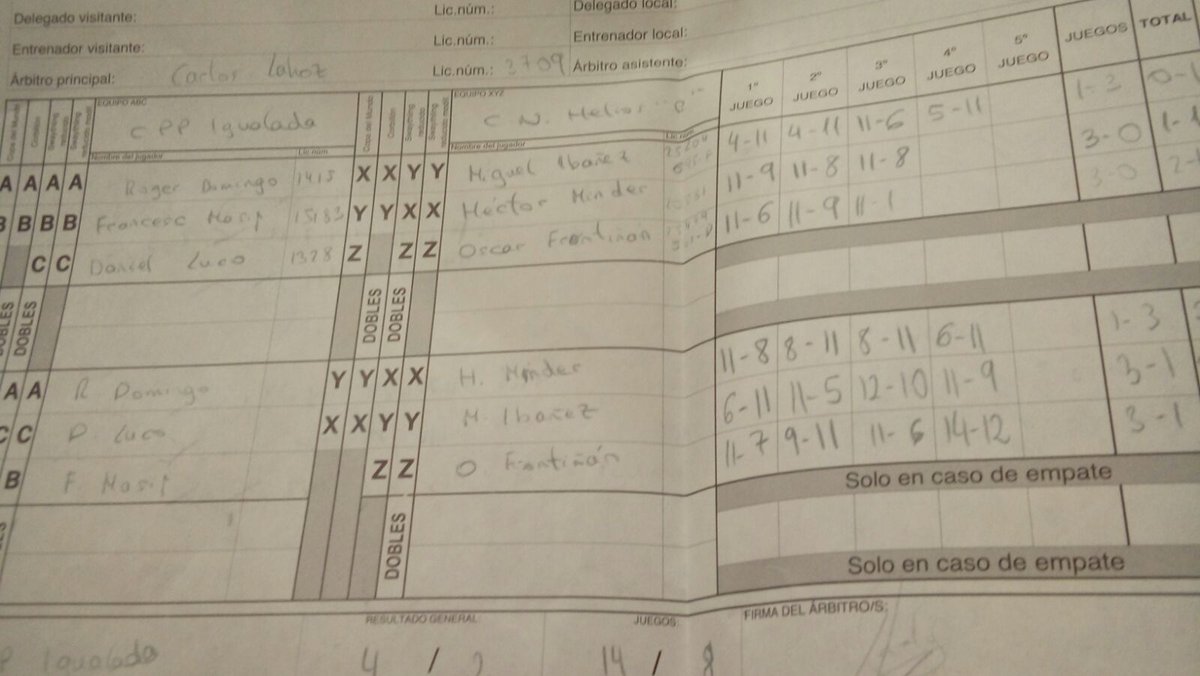 Delegado visitante: Lic.núm.: Delegado local:
Entrenador visitante: Lic.núm.: Entrenador local:
Árbitro principal: Carlos Lic.núm.: 2709 Árbitro asistente:
1º JUEGO 2º JUEGO 3º JUEGO 4º JUEGO 5º JUEGO JUEGOS TOTAL
EQUIPO ABC EQUIPO XYZ
CPP Igualada C N. Helios "B"
Nombre del jugador Lic.núm. Nombre del jugador Lic.núm.
A A A A Roger Domingo 1415 X X Y Y Miguel Ibañez 4-11 4-11 11-6 5-11 1-3 0-1
B B B B Francesc Masip 15183 Y Y X X Héctor Mindes 11-9 11-8 11-8 3-0 1-1
C C Daniel Luco 1328 Z Z Z Oscar Frontiñán 11-6 11-9 11-1 3-0
DOBLES DOBLES DOBLES DOBLES
A A R Domingo Y Y X X H. Mindes 11-8 8-11 8-11 6-11 1-3
C C D. Luco X X Y Y M. Ibañez 6-11 11-5 12-10 11-9 3-1
B F. Masip Z Z O Frontiñán 11-7 9-11 11-6 14-12 3-1
Solo en caso de empate
DOBLES
Solo en caso de empate
RESULTADO GENERAL: JUEGOS: FIRMA DEL ÁRBITRO/S:
P Igualada 4 / 2 14 / 8